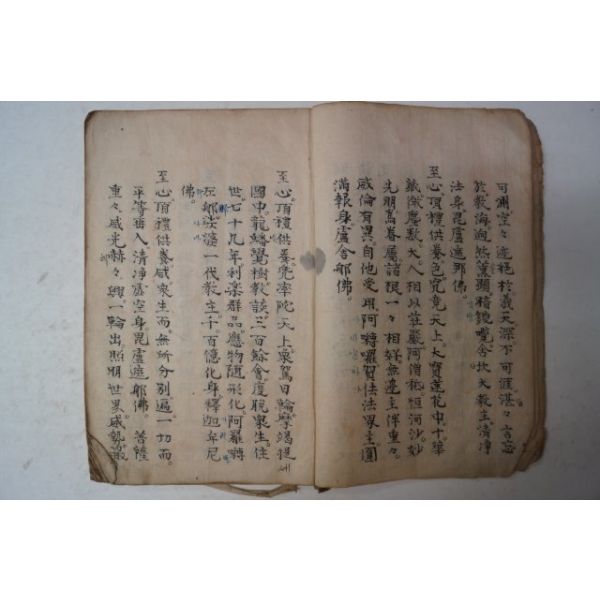 可測空々迹絶於義天深不可涯湛々言忘
於教海逈然薰顯稽鍐嚂含坎大教主淸淨
法身毘盧遮那佛。
至心頂禮供養色究竟天上。大寶蓮花中十華
藏微塵數。大人相以莊嚴阿僧祗恒河沙妙
光明爲眷屬諸根一々相好無邊主伴重々。
威倫有異自他受用阿囀囉賀佉法界主圓
滿報身盧舍那佛
至心頂禮供養兜率陀天上象駕日輪摩竭提
國中。龍蟠覺樹敎談三百餘會度脫衆生住
世。七十九年利樂羣品應物隨形化阿羅囀
左那娑婆一代敎主。千百億化身釋迦牟尼
佛。
至心頂禮供養感衆生而。無所分別遍一切而。
平等普入淸淨虛空身毘盧遮那佛。
重々威光赫々興一輪出照明世界威勢